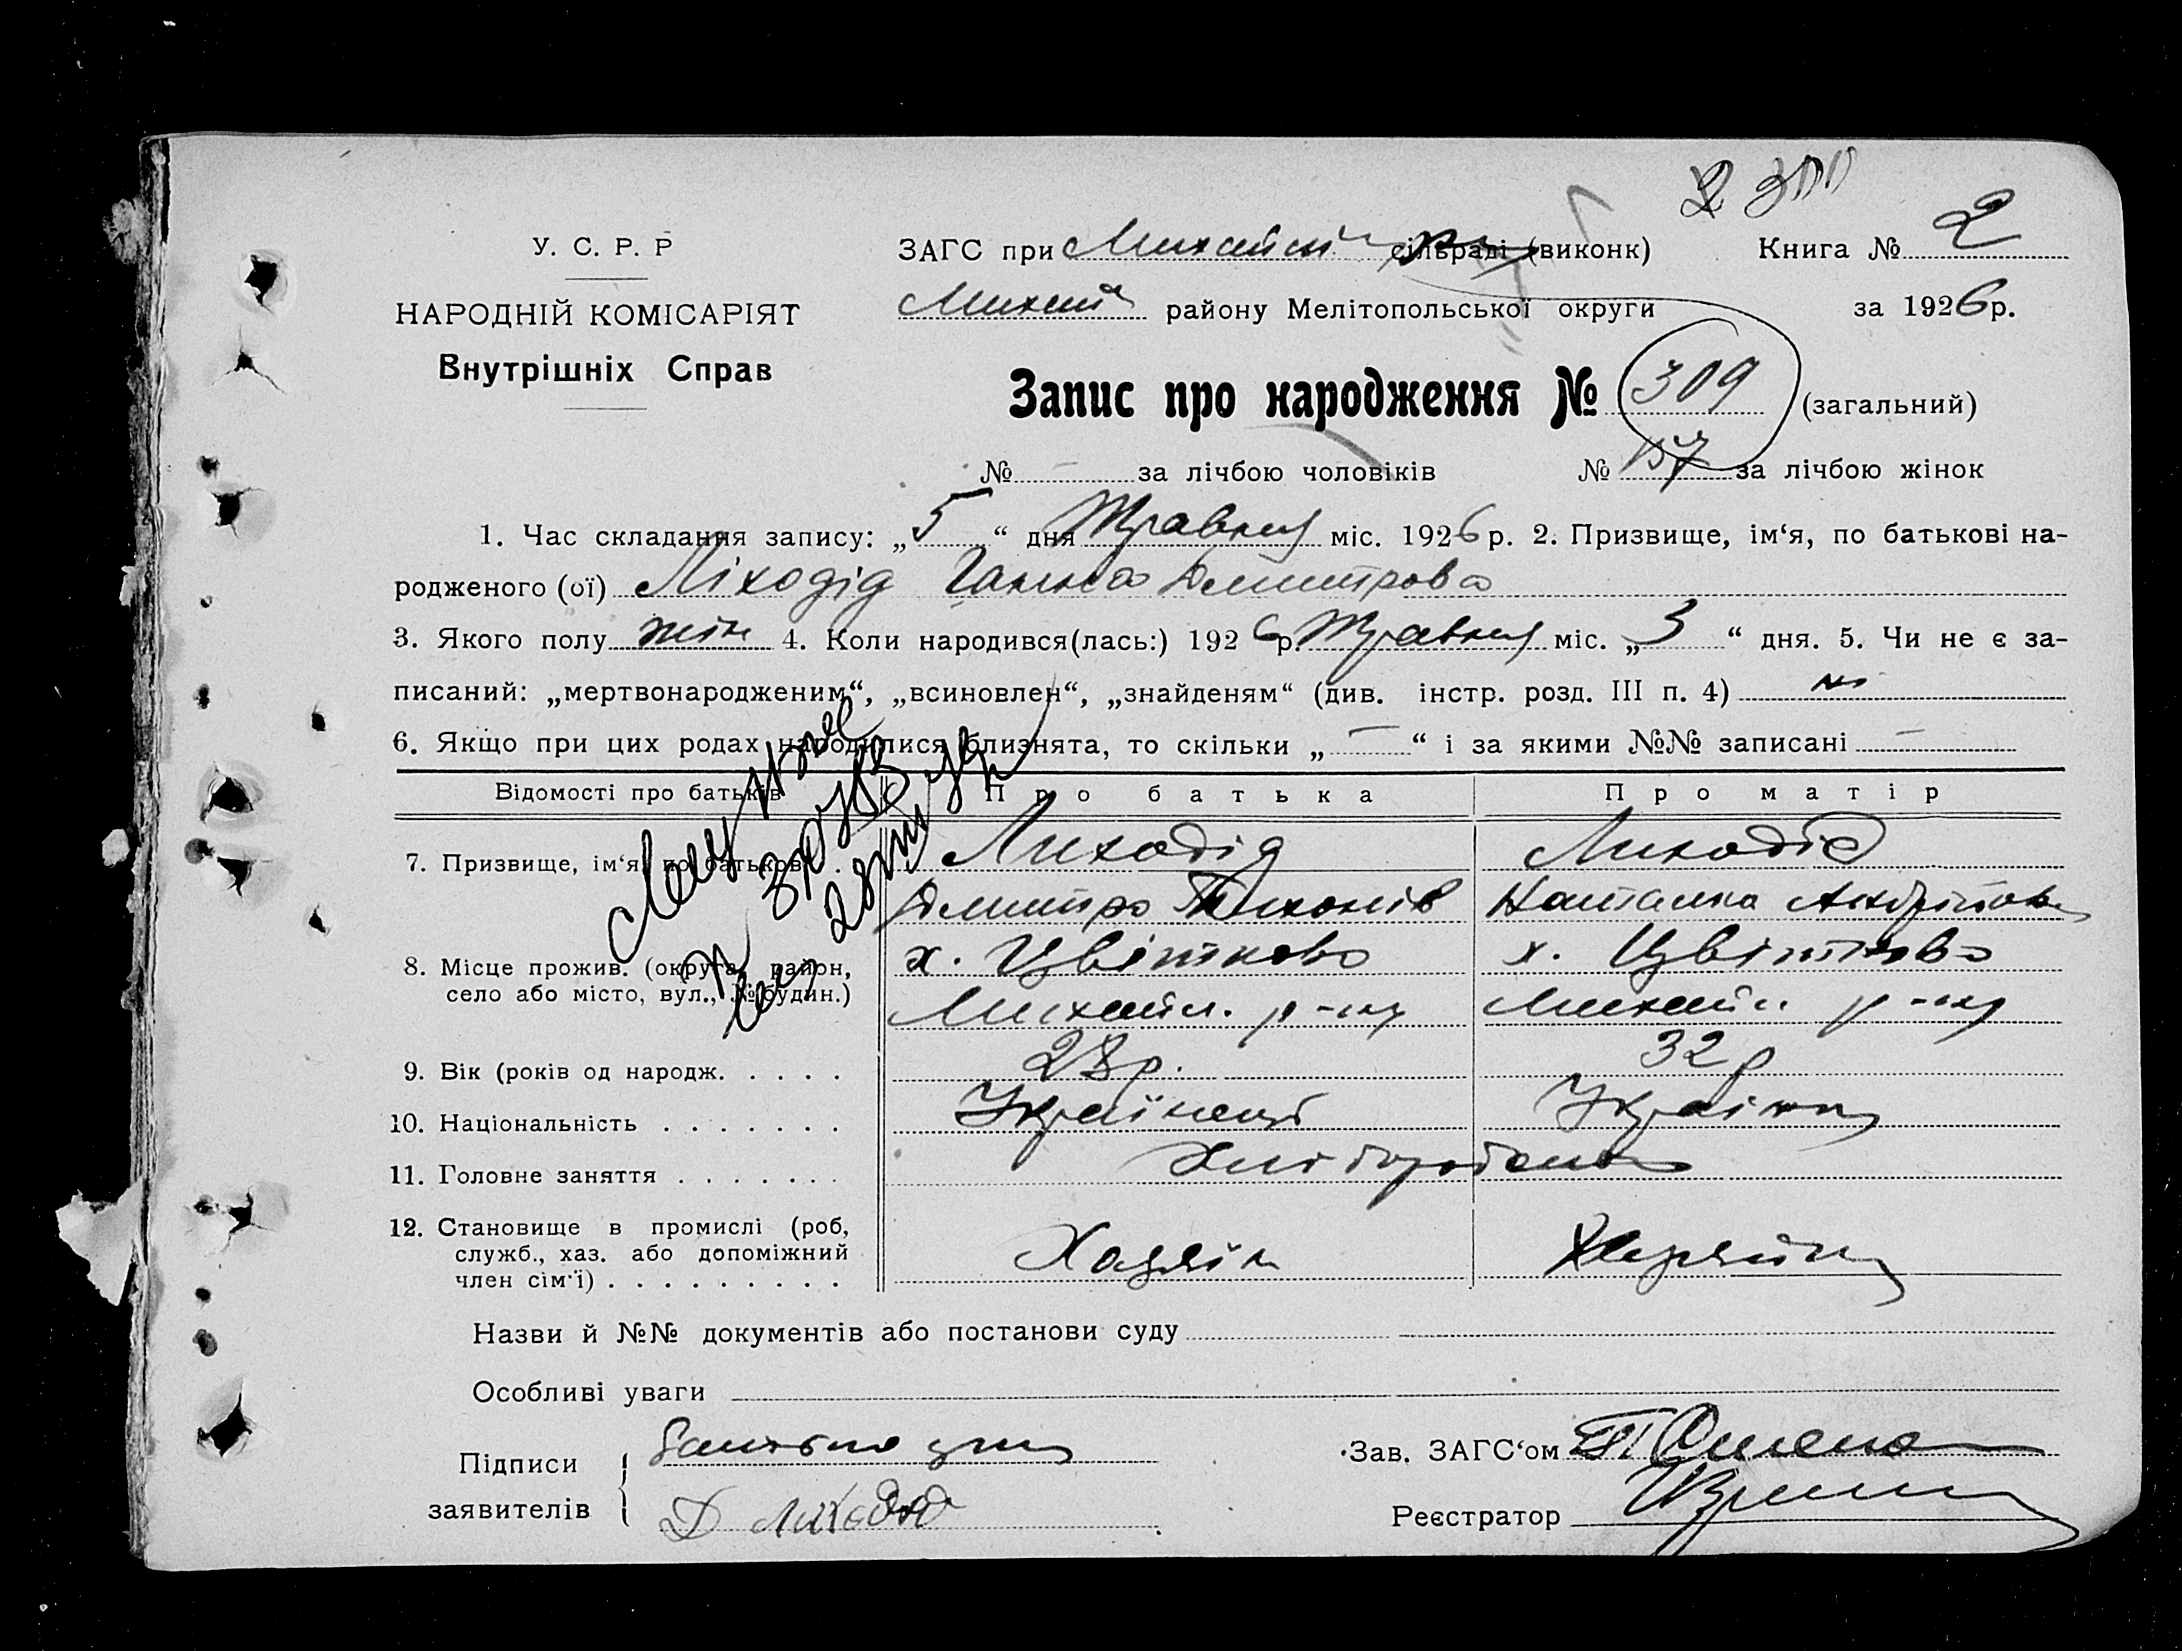 У. С. Р. Р
НАРОДНІЙ КОМІСАРІЯТ
Внутрішніх Справ
ЗАГС при сільраді (виконк) Книга № 2
району Мелітопольської округи за 1926 р.
Запис про народження № 309 (загальний)
№ — за лічбою чоловіків № 157 за лічбою жінок
1. Час складання запису: „5“ дня Травня міс. 1926 р. 2. Призвище, ім‘я, по батькові на-
родженого (ої) Ліходід Ганна Дмитрова
3. Якого полу жін 4. Коли народився(лась:) 1926 р. Травня міс. „3“ дня. 5. Чи не є за-
писаний: „мертвонародженим“, „всиновлен“, „знайденям“ (див. інстр. розд. III п. 4) ні
6. Якщо при цих родах народилися близнята, то скільки „—“ і за якими №№ записані —
Відомості про батьків Про батька Про матір
7. Призвище, ім‘я, по батькові . Лиходід Лиходід
Дмитро Тихонів Наталка Андріївна
8. Місце прожив. (округа, район, х. Цвіткове х. Цвіткове
село або місто, вул., № будин.) Михайл. р-ну Михайл. р-ну
9. Вік (років од народж. . . . . 28 р. 32 р
10. Національність . . . . . . . Українець Українка
11. Головне заняття . . . . . . . Хліборобство
12. Становище в промислі (роб, Хазяїн Хазяйка
служб., хаз. або допоміжний
член сім‘ї) . . . . . . . . .
Назви й №№ документів або постанови суду
Особливі уваги
Підписи
заявителів
Д Лиходід
Зав. ЗАГС‘ом
Реєстратор